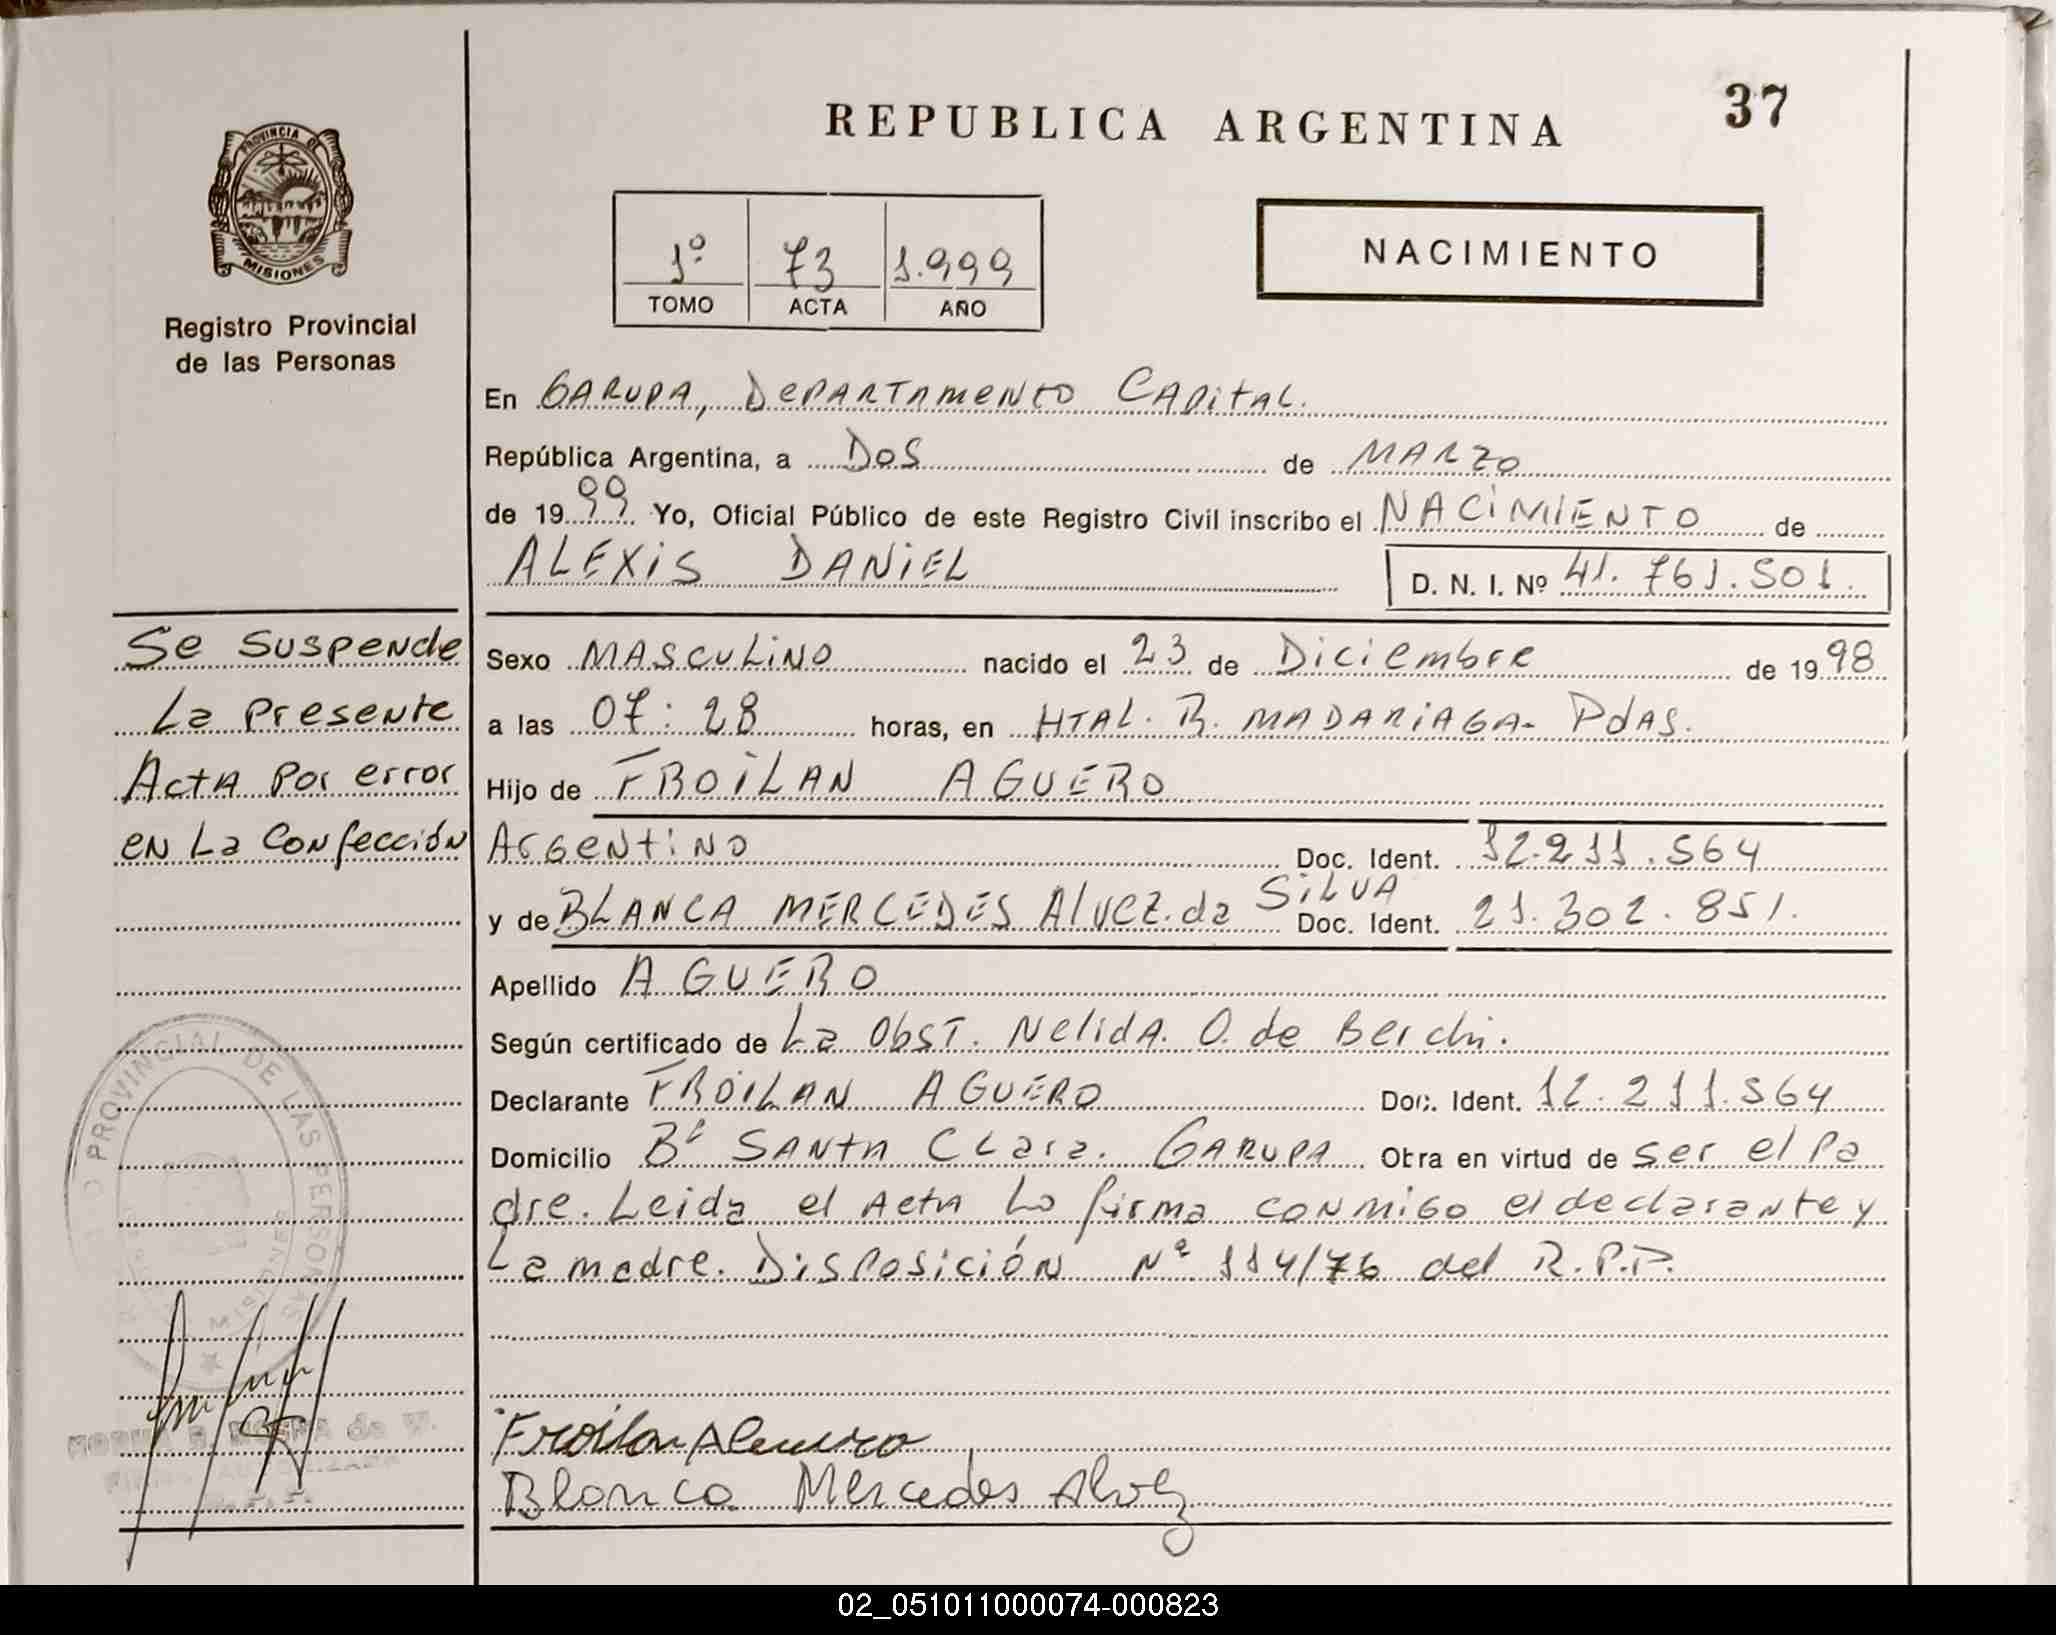 REPUBLICA ARGENTINA
37
PROVINCIA DE
MISIONES
Registro Provincial
de las Personas
1º 73 1.999
TOMO ACTA AÑO
NACIMIENTO
En GARUPA, DEPARTAMENTO CAPITAL.
República Argentina, a DOS de MARZO
de 1999 Yo, Oficial Público de este Registro Civil inscribo el NACIMIENTO de
ALEXIS DANIEL D. N. I. Nº 41.761.501.
Sexo MASCULINO nacido el 23 de Diciembre de 1998
a las 07:28 horas, en HTAL. R. MADARIAGA- Pdas.
Hijo de FROILAN AGUERO
Argentino Doc. Ident. 12.211.564
y de BLANCA MERCEDES Alvez.da SILVA Doc. Ident. 21.302.851.
Apellido AGUERO
Según certificado de La Obst. Nelida. O. de Berchi.
Declarante FROILAN AGUERO Doc. Ident. 12.211.564
Domicilio Bº SANTA Clara. GARUPA Obra en virtud de ser el Pa
dre. Leida el Acta Lo firma conmigo el declarante y
La madre. Disposición Nº 114/76 del R.P.P.
Froilan Aguero
Blanca Mercedes Alvez
Se suspende
La Presente
Acta Por error
en La Confección
PROVINCIAL DE LAS PERSONAS
02_051011000074-000823